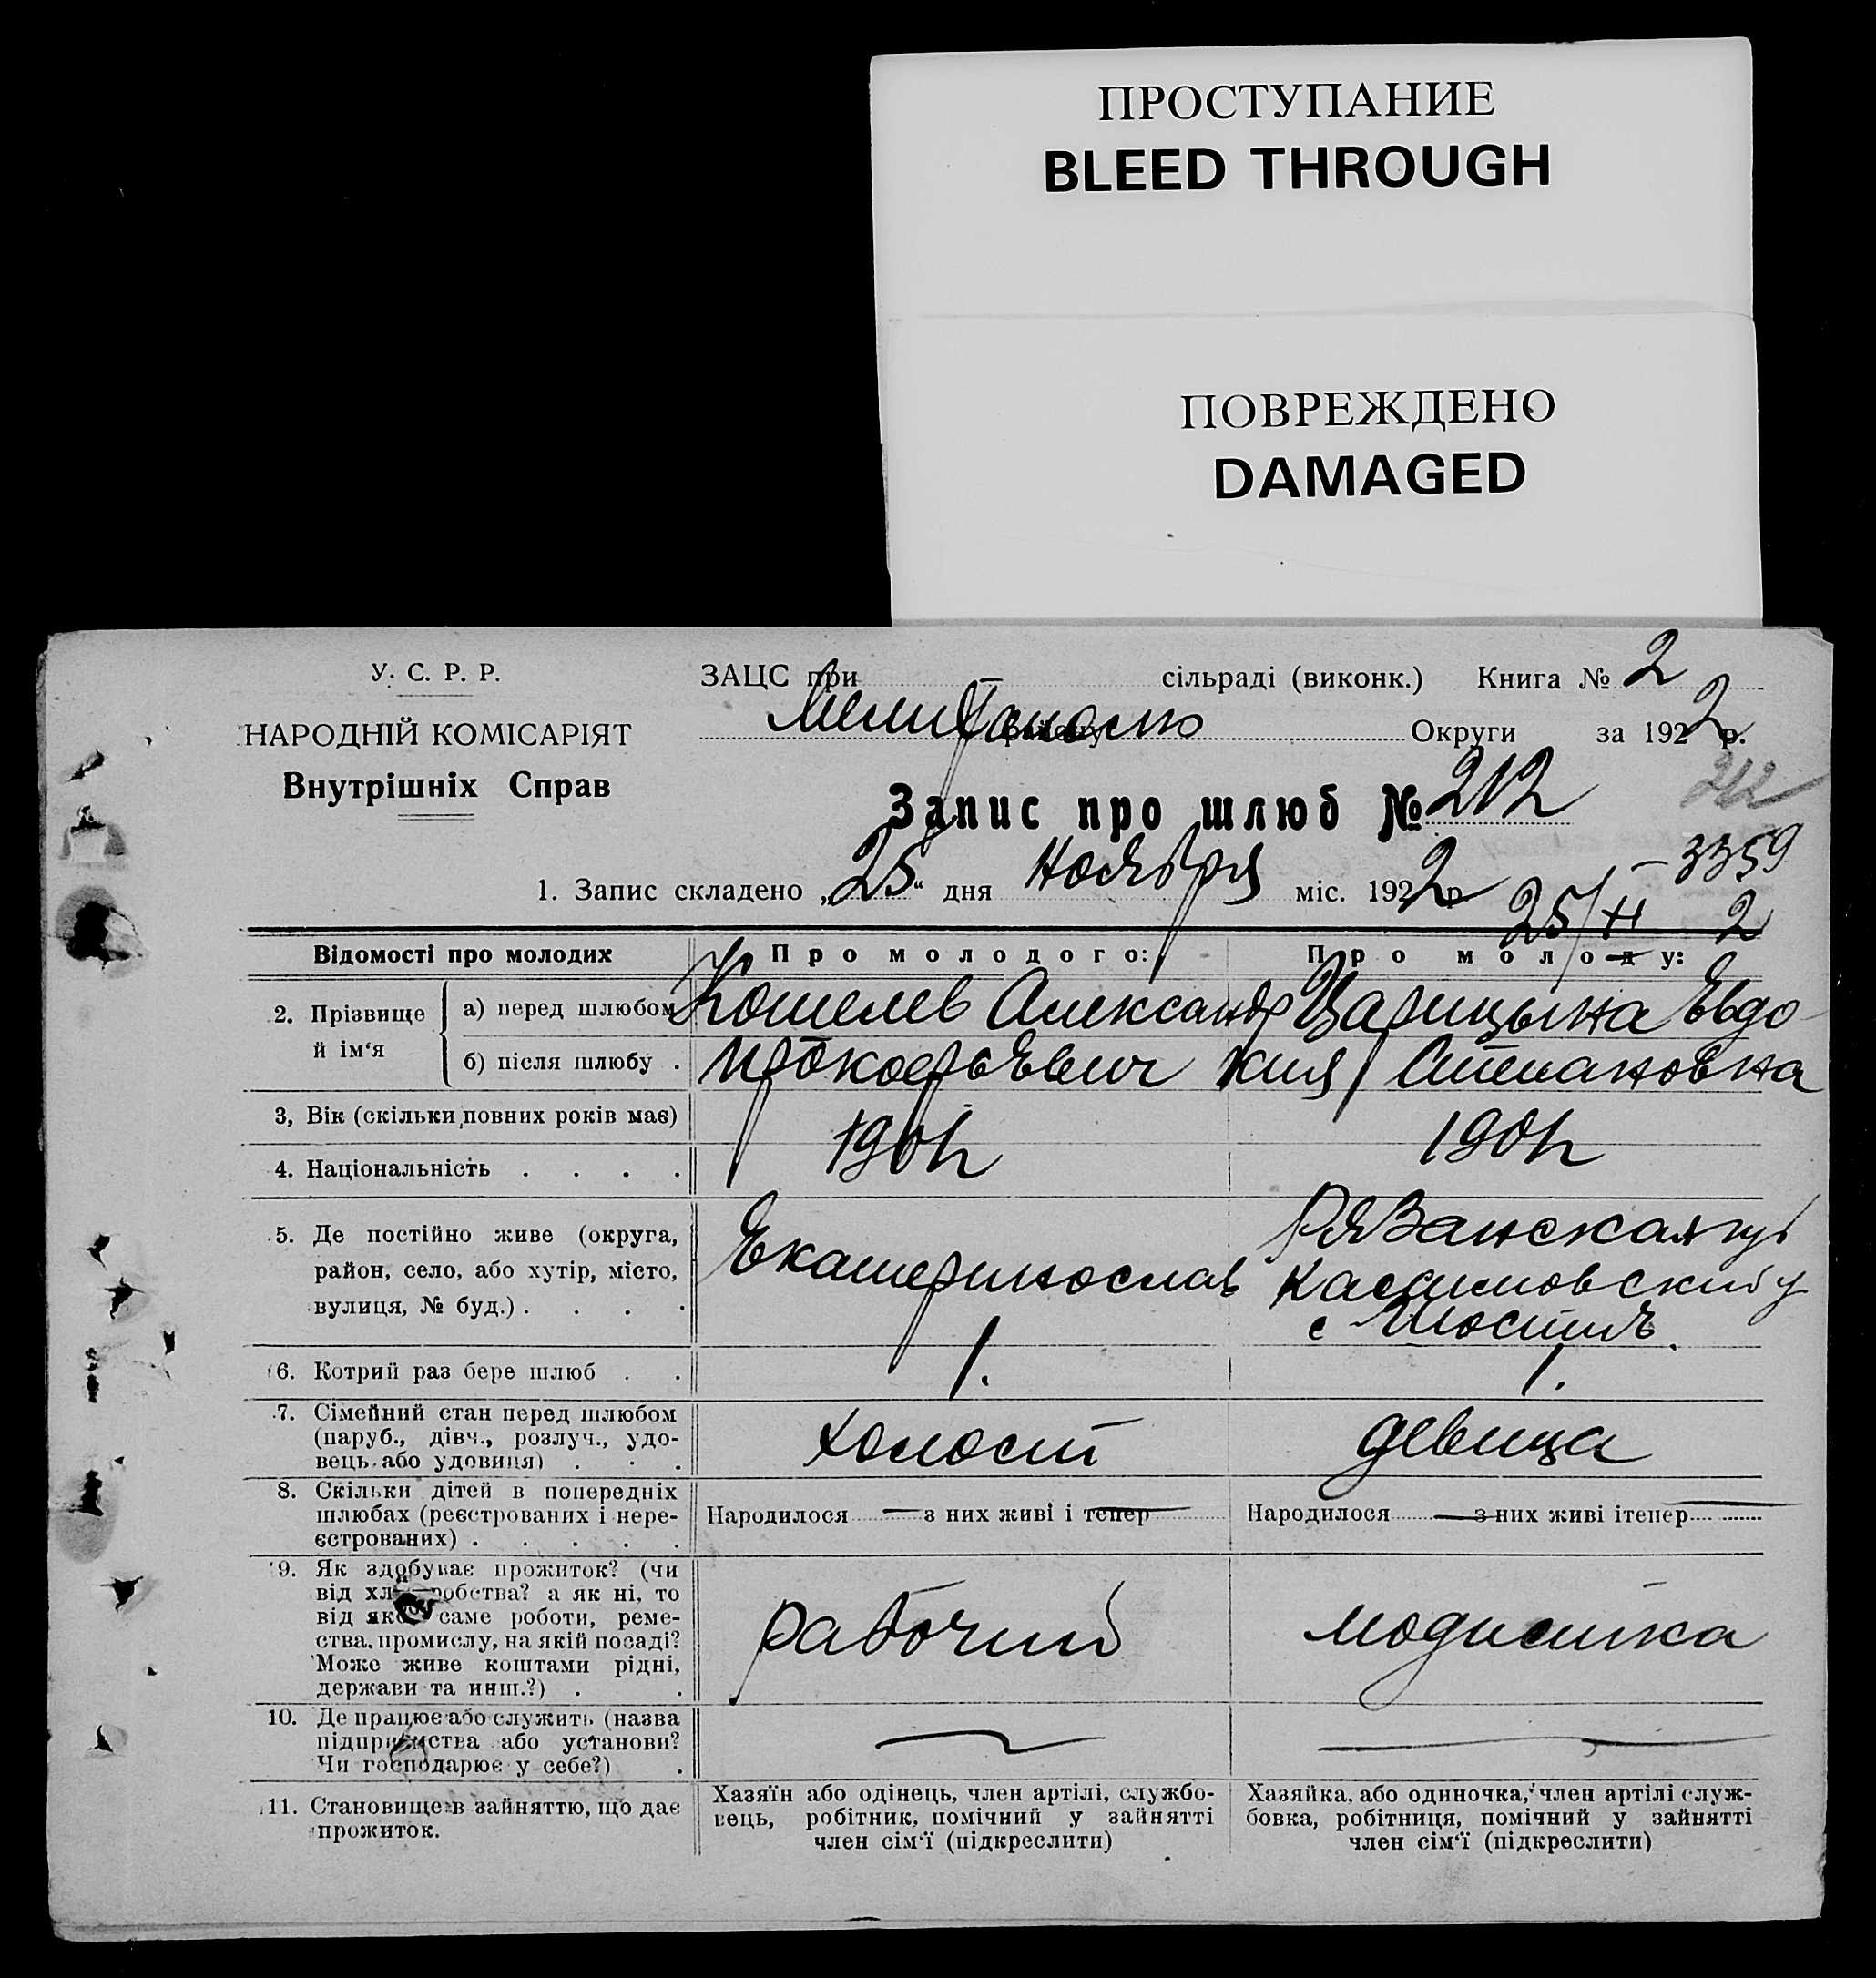 ПРОСТУПАНИЕ
BLEED THROUGH
ПОВРЕЖДЕНО
DAMAGED
У. С. Р. Р.
НАРОДНІЙ КОМІСАРІЯТ
Внутрішніх Справ
ЗАЦС при сільраді (виконк.) Книга № 2
Округи за 1922 р.
Запис про шлюб № 212
212
3359
1. Запис складено „25“ дня Ноября міс. 1922 р.
25/XI 2
Відомості про молодих Про молодого: Про молоду:
2. Прізвище й ім‘я а) перед шлюбом Кошелев Александр Царицына Евдо-
б) після шлюбу . Прокофьевич кия Степановна
3, Вік (скільки повних років має) 1901г 1901г
4. Національність . . . .
5. Де постійно живе (округа, район, село, або хутір, місто, вулиця, № буд.) . . . . Екатеринослав Рязанская губ
Касимовский у
с
6. Котрий раз бере шлюб . . 1. 1.
7. Сімейний стан перед шлюбом (паруб., дівч., розлуч., удовець або удовиця) . . . холост девица
8. Скільки дітей в попередніх шлюбах (реєстрованих і нереєстрованих) . . . . . Народилося — з них живі і тепер — Народилося — з них живі і тепер —
9. Як здобуває прожиток? (чи
від робства? а як ні, то
від саме роботи, реме-
ства, промислу, на якій посаді?
Може живе коштами рідні,
держави та инш.?) . . рабочий модистка
10. Де працює або служить (назва
підприємства або установи?
Чи господарює у себе?) . — —
11. Становище в зайняттю, що дає
прожиток.
Хазяїн або одінець, член артілі, службо-
вець, робітник, помічний у зайнятті
член сім‘ї (підкреслити)
Хазяйка, або одиночка, член артілі служ-
бовка, робітниця, помічний у зайнятті
член сім‘ї (підкреслити)